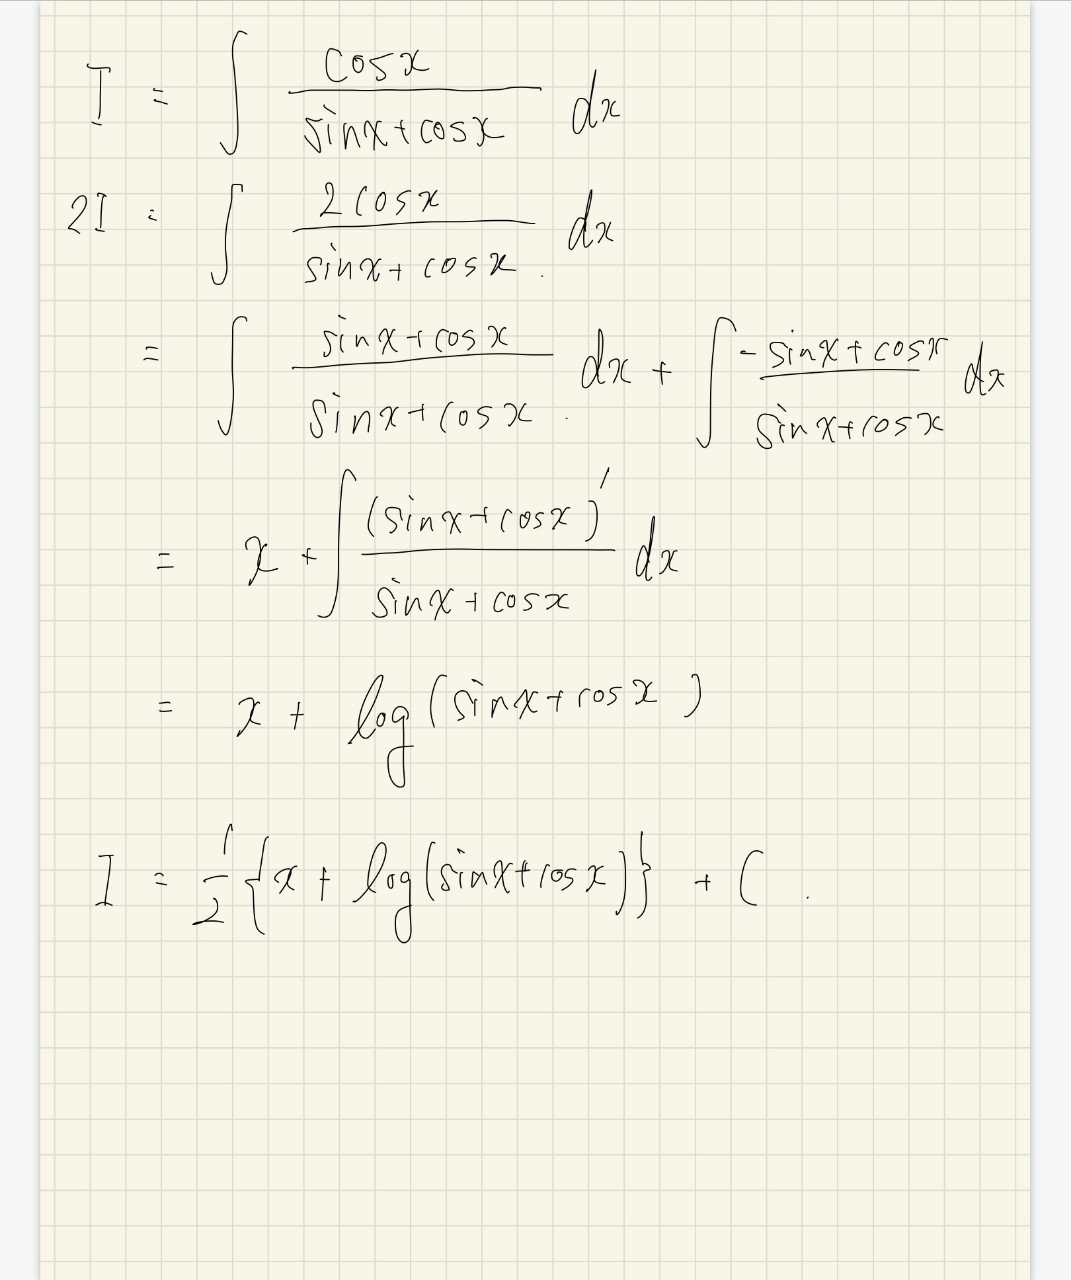 I = ∫ cosx / (sinx+cosx) dx
2I = ∫ 2cosx / (sinx+cosx) dx
= ∫ (sinx+cosx) / (sinx+cosx) dx + ∫ (-sinx+cosx) / (sinx+cosx) dx
= x + ∫ (sinx+cosx)' / (sinx+cosx) dx
= x + log(sinx+cosx)
I = 1/2 {x + log(sinx+cosx)} + C.